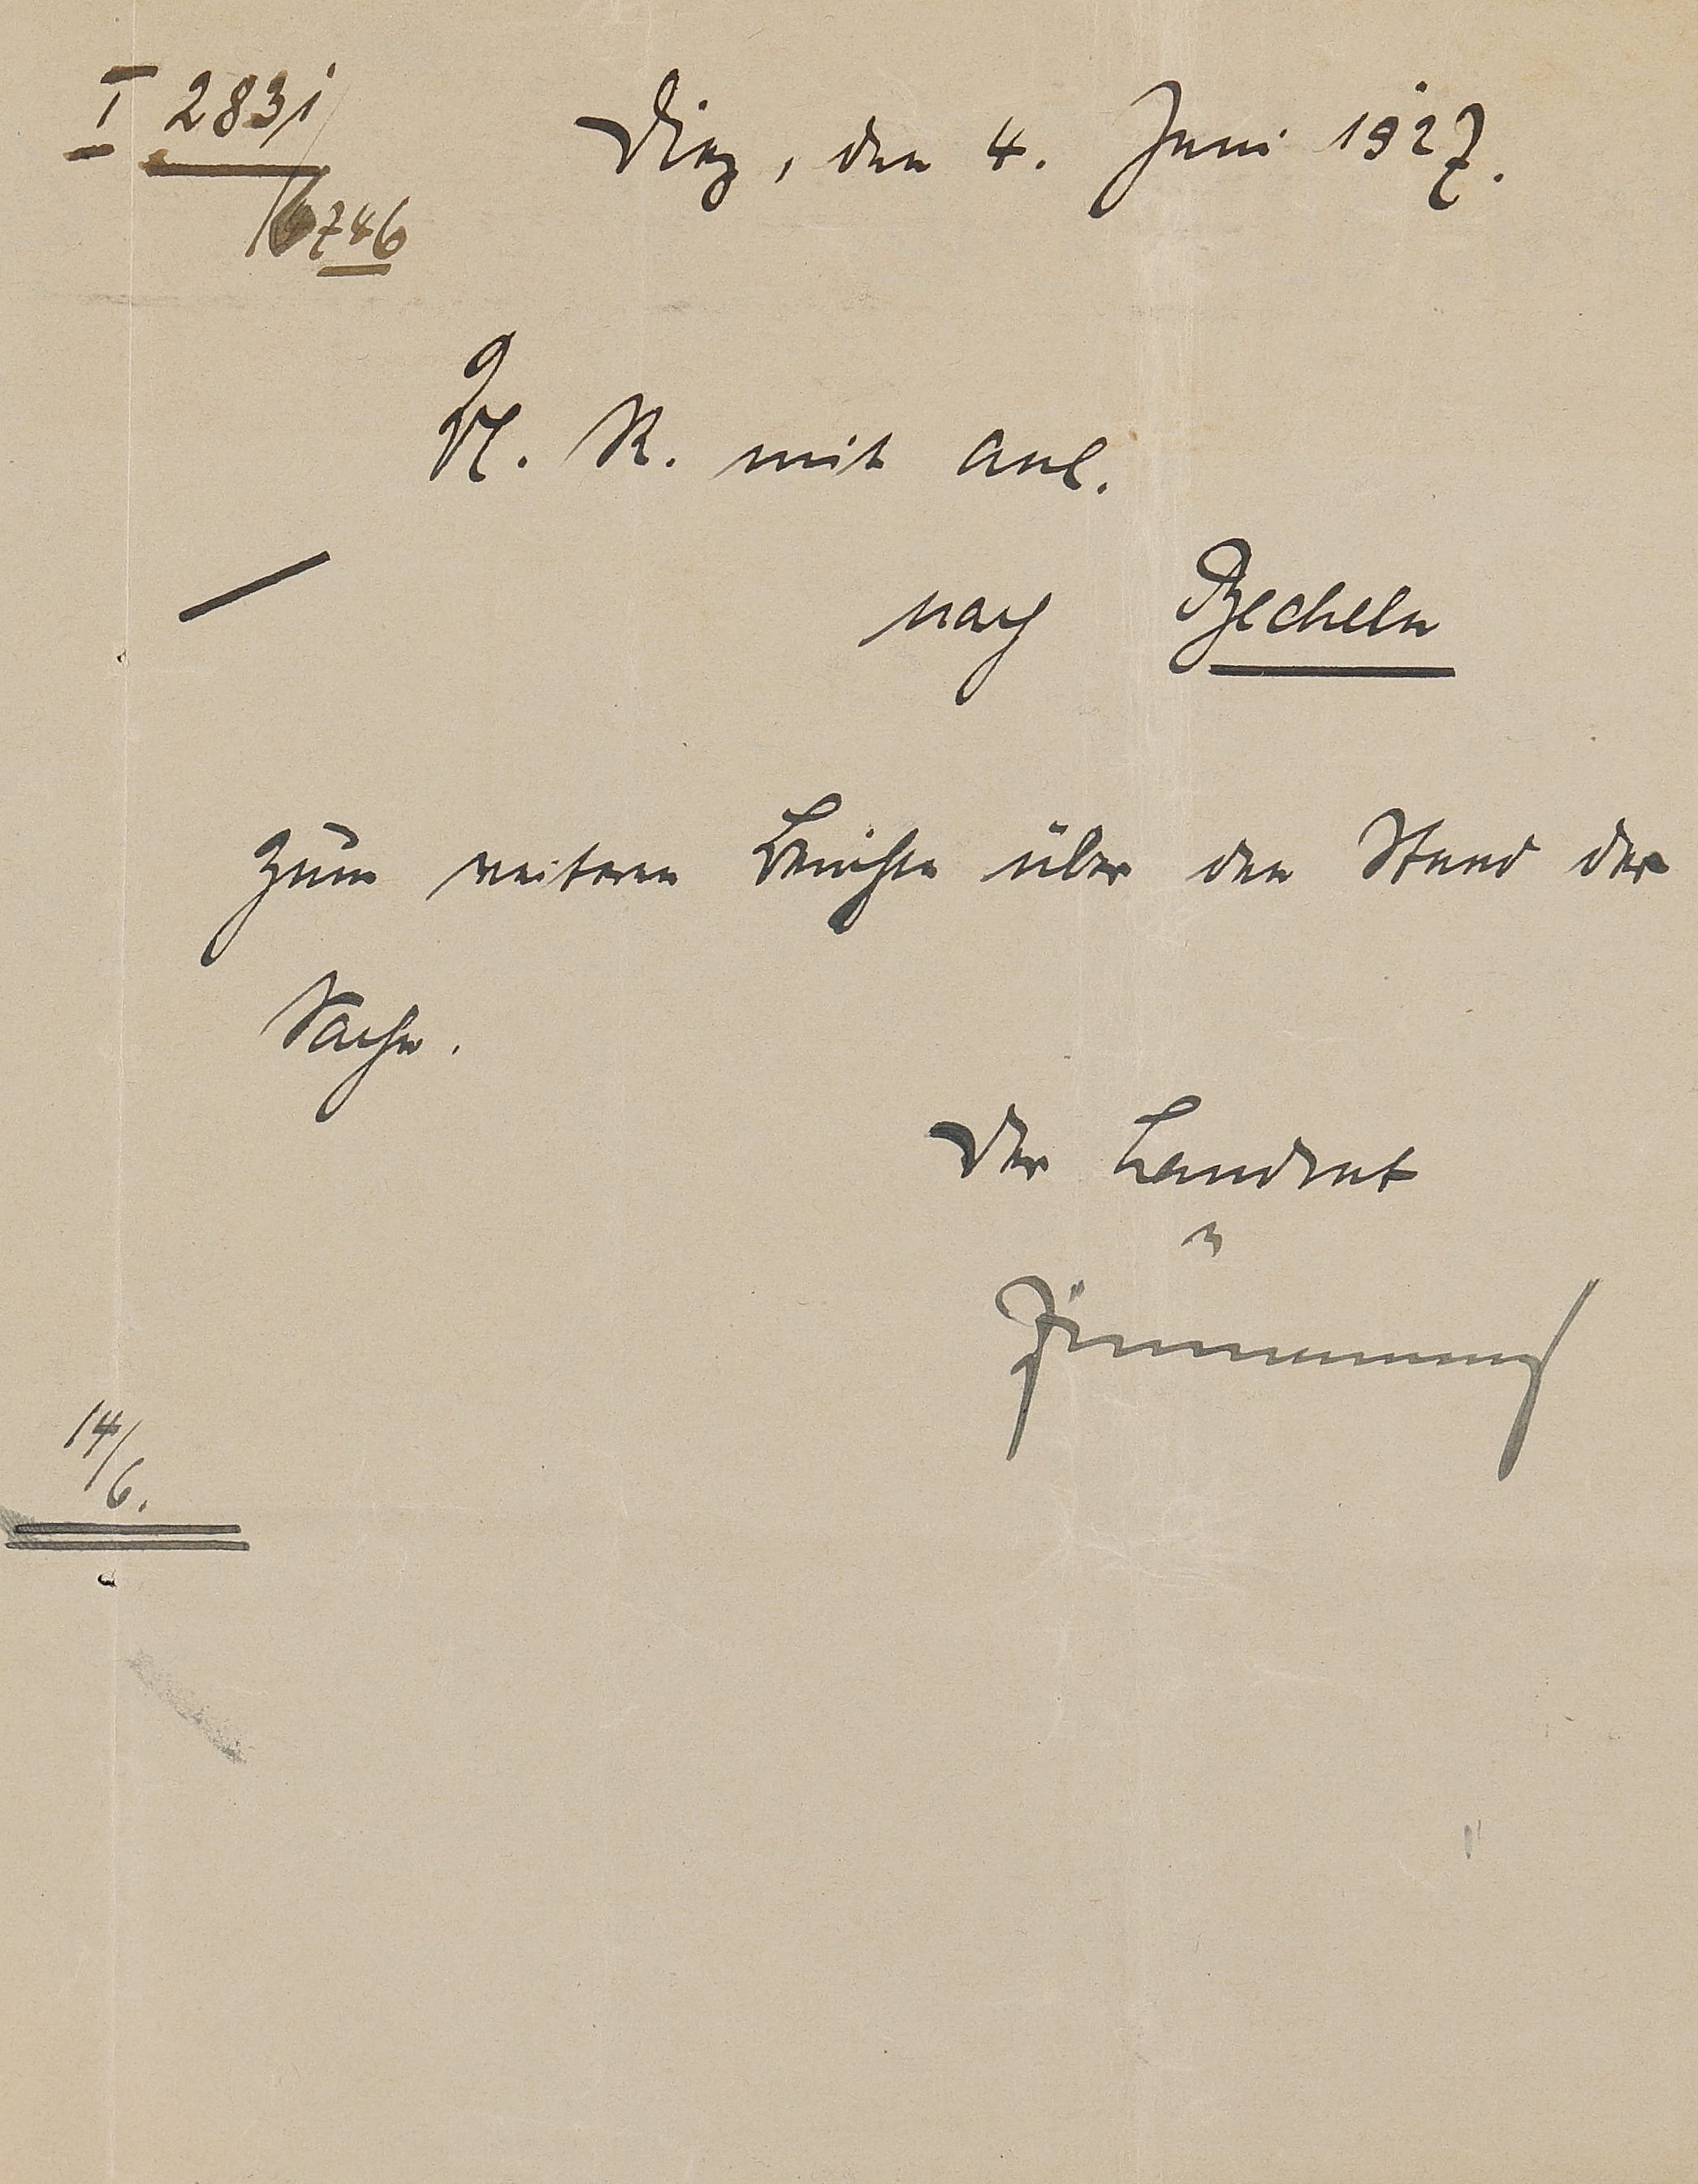 I 2831
6746
Diez, den 4. Juni 1927.
U. R. mit Anl.
nach Becheln
zum weiteren Berichte über den Stand der
Sache.
Der Landrat
14/6.